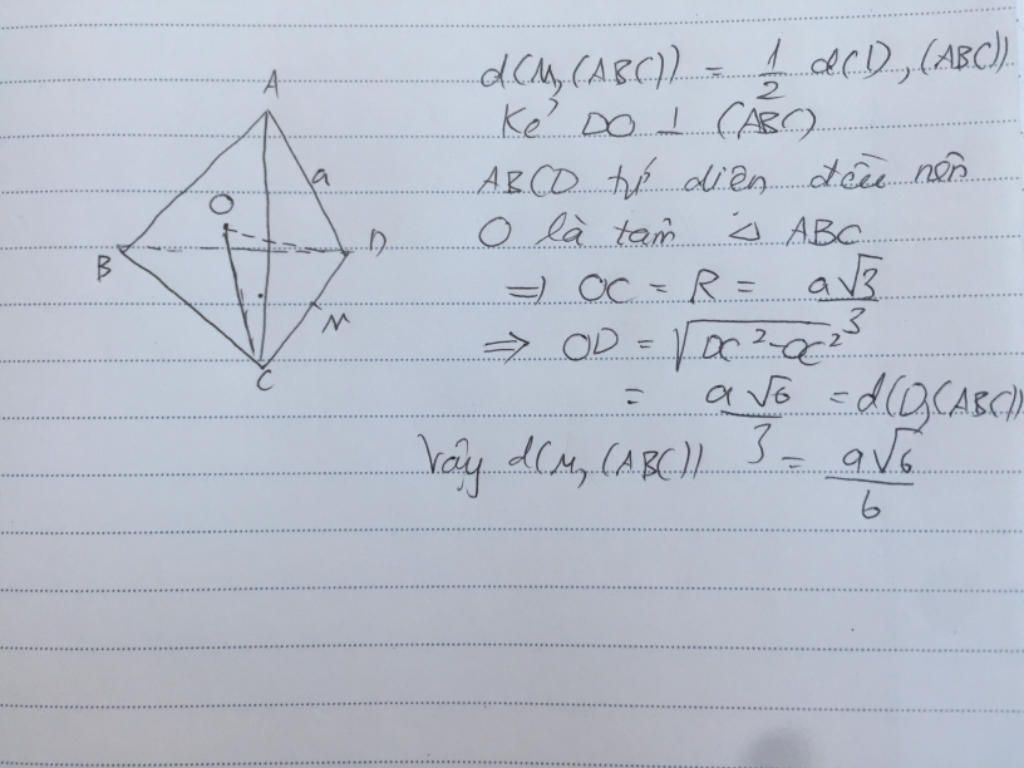 A
a
O
B
D
M
C
d(M, (ABC)) = 1/2 d(D, (ABC))
Kẻ DO ⊥ (ABC)
ABCD tứ diện đều nên
O là tâm △ ABC
=> OC = R = a√3/3
=> OD = √(DC² - OC²)
= a√6/3 = d(D, (ABC))
Vậy d(M, (ABC)) = a√6/6